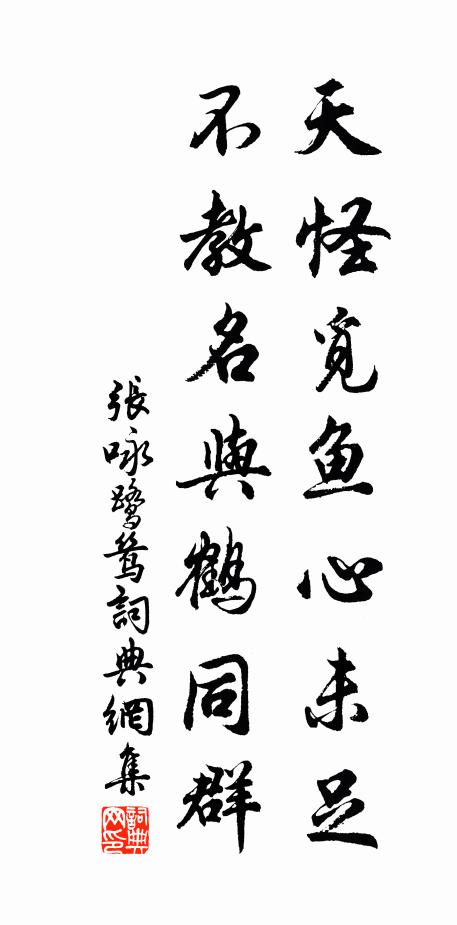 天怪覓鱼心未足
不教名與鶴同群
張咏鷺鷥詞典網集
詞典网印